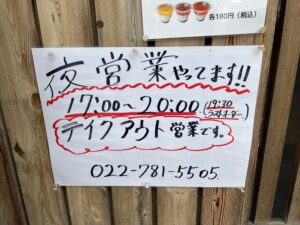 各180円(税込)
夜営業やってます!!
17:00〜20:00(19:30 ラストオーダー)
テイクアウト営業です。
022-781-5505